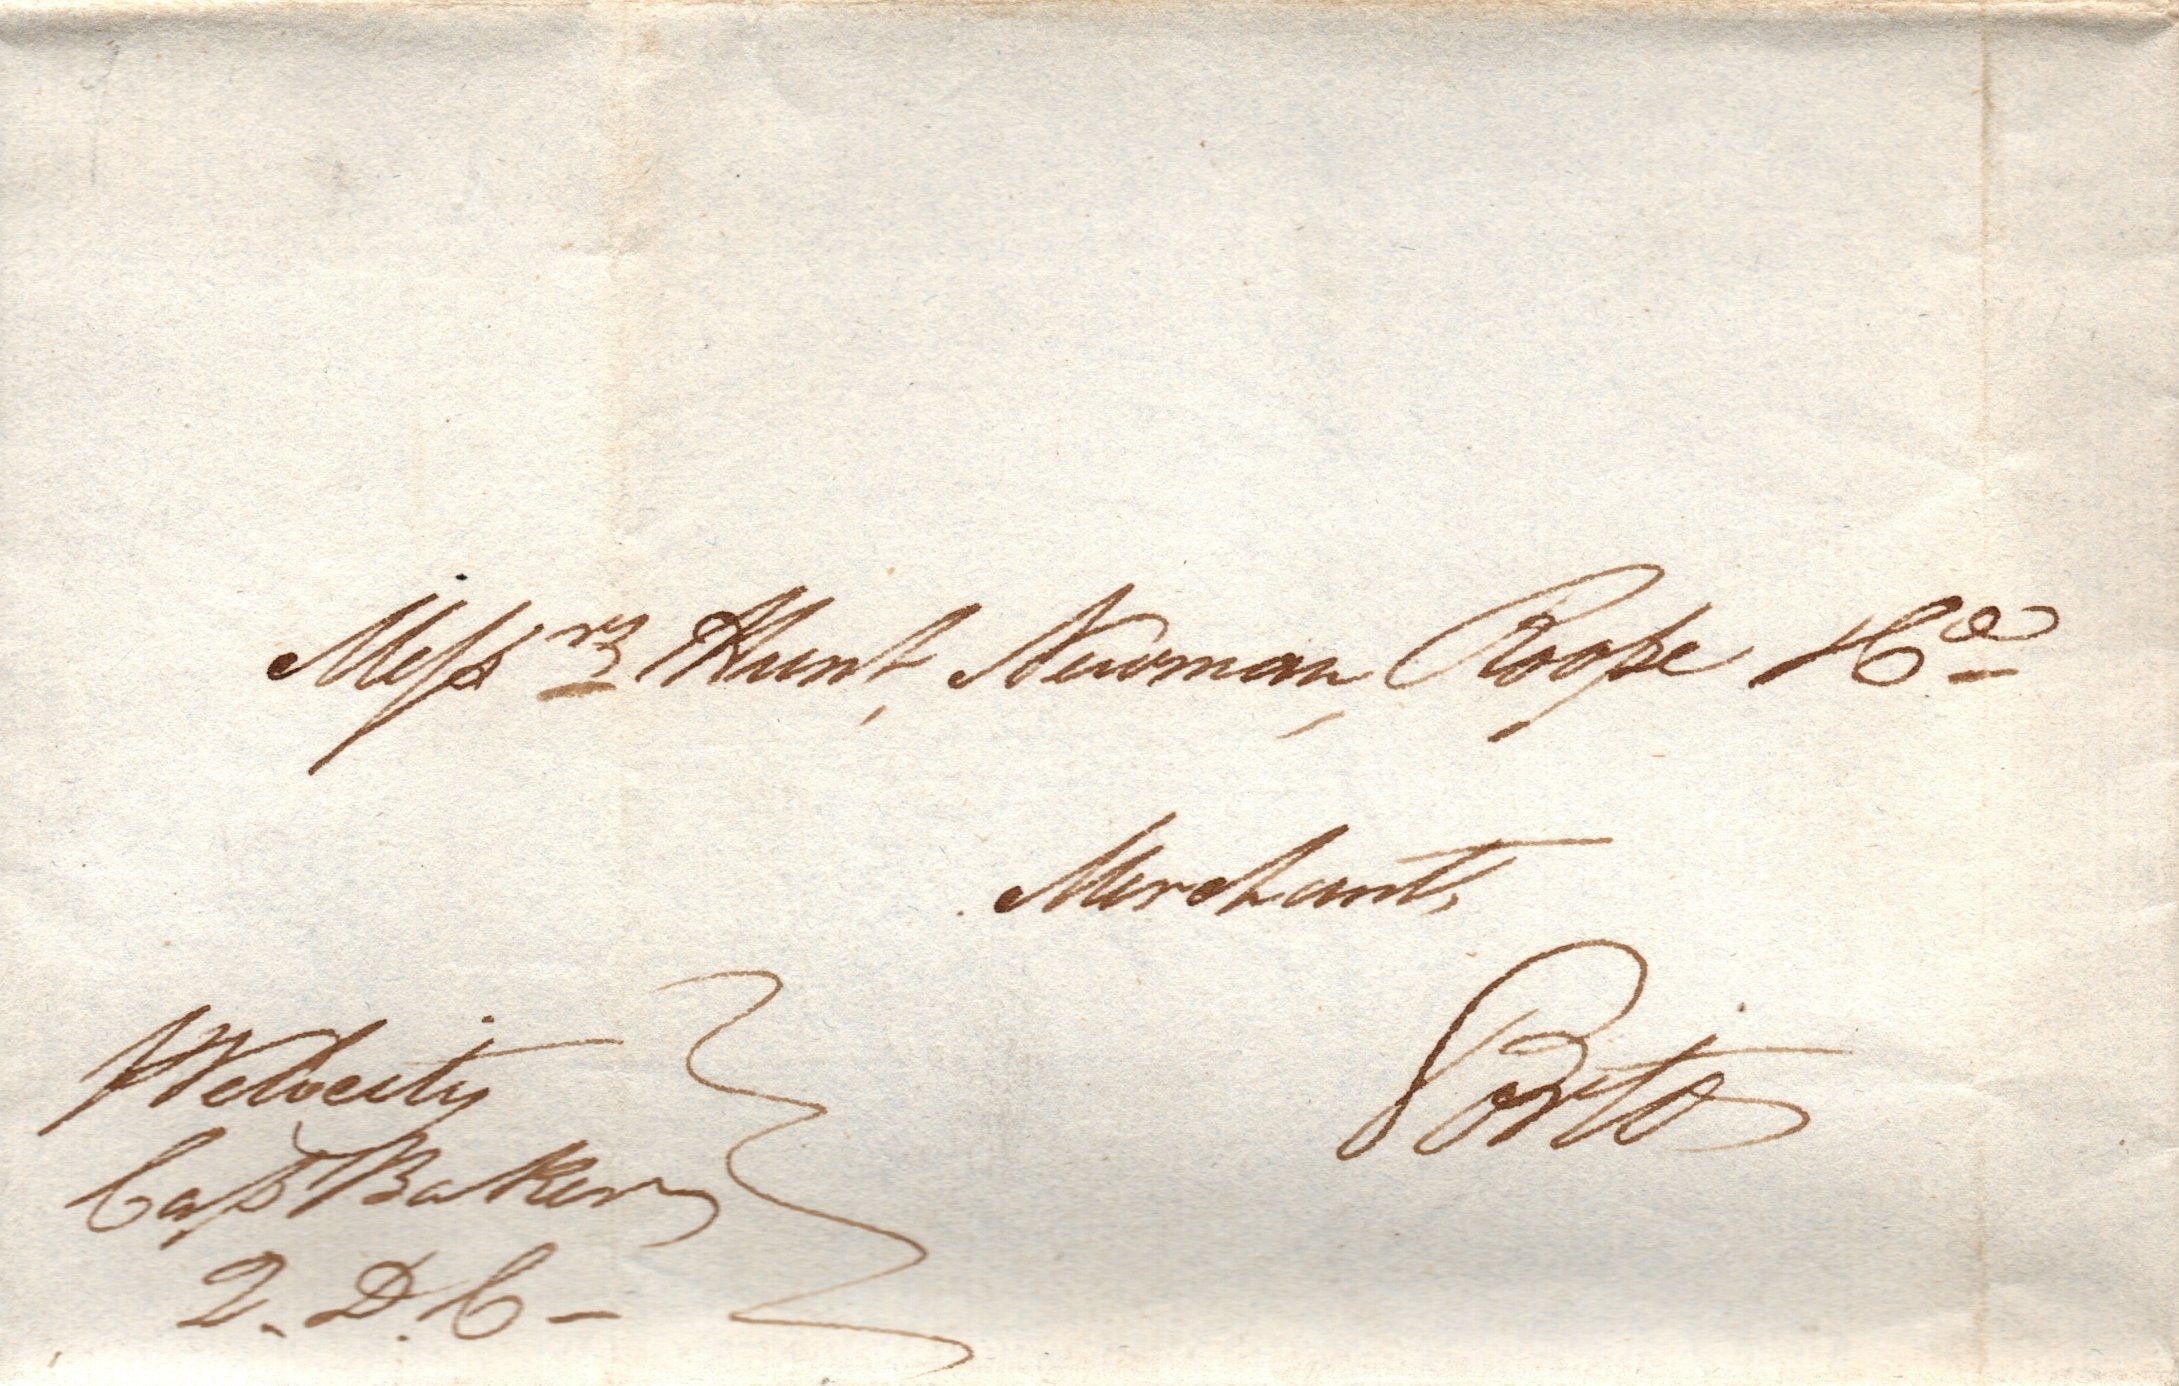 Messrs Hunt, Newman, Roope & Co
Merchants,
Porto
Velocity
Capt Baker
2. D. C -